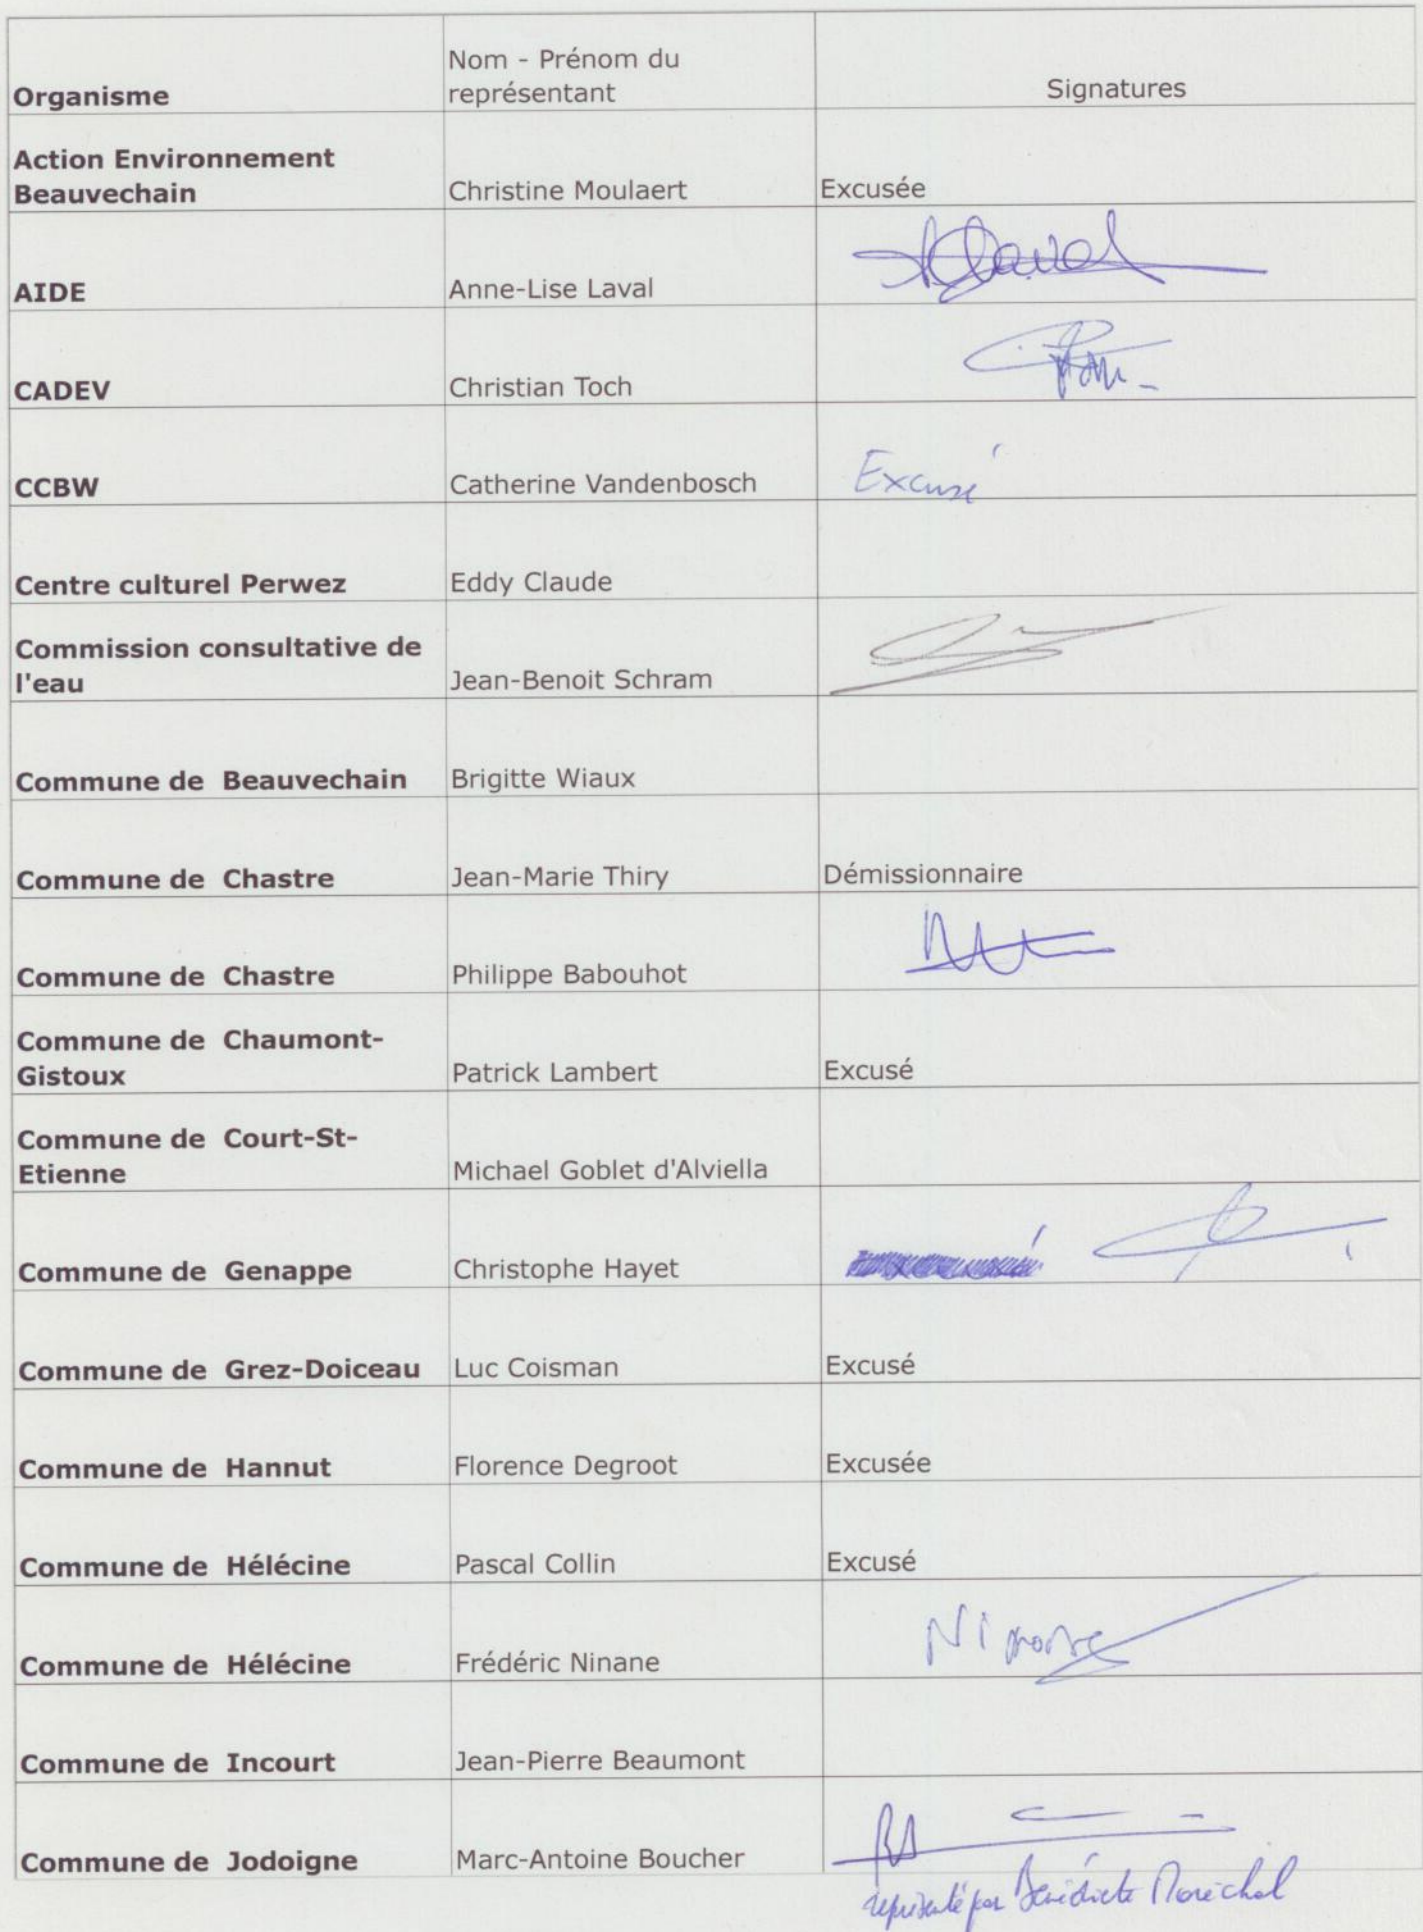 Organisme
Nom - Prénom du
représentant
Signatures
Action Environnement
Beauvechain
Christine Moulaert
Excusée
AIDE
Anne-Lise Laval
CADEV
Christian Toch
CCBW
Catherine Vandenbosch
Excusé
Centre culturel Perwez
Eddy Claude
Commission consultative de
l'eau
Jean-Benoit Schram
Commune de Beauvechain
Brigitte Wiaux
Commune de Chastre
Jean-Marie Thiry
Démissionnaire
Commune de Chastre
Philippe Babouhot
Commune de Chaumont-
Gistoux
Patrick Lambert
Excusé
Commune de Court-St-
Etienne
Michael Goblet d'Alviella
Commune de Genappe
Christophe Hayet
Commune de Grez-Doiceau
Luc Coisman
Excusé
Commune de Hannut
Florence Degroot
Excusée
Commune de Hélécine
Pascal Collin
Excusé
Commune de Hélécine
Frédéric Ninane
Ninane
Commune de Incourt
Jean-Pierre Beaumont
Commune de Jodoigne
Marc-Antoine Boucher
représenté par Bénédicte Maréchal